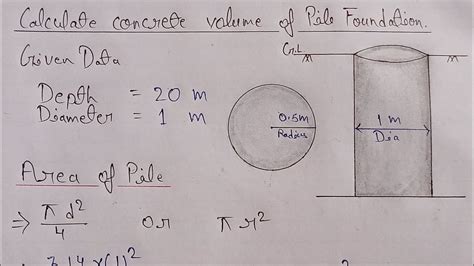 Calculate concrete volume of Pile Foundation.
Given Data
Depth = 20 m
Diameter = 1 m
G.L
0.5m
Radius
1 m
Dia
Area of Pile
⇒ πd²/4 or πr²